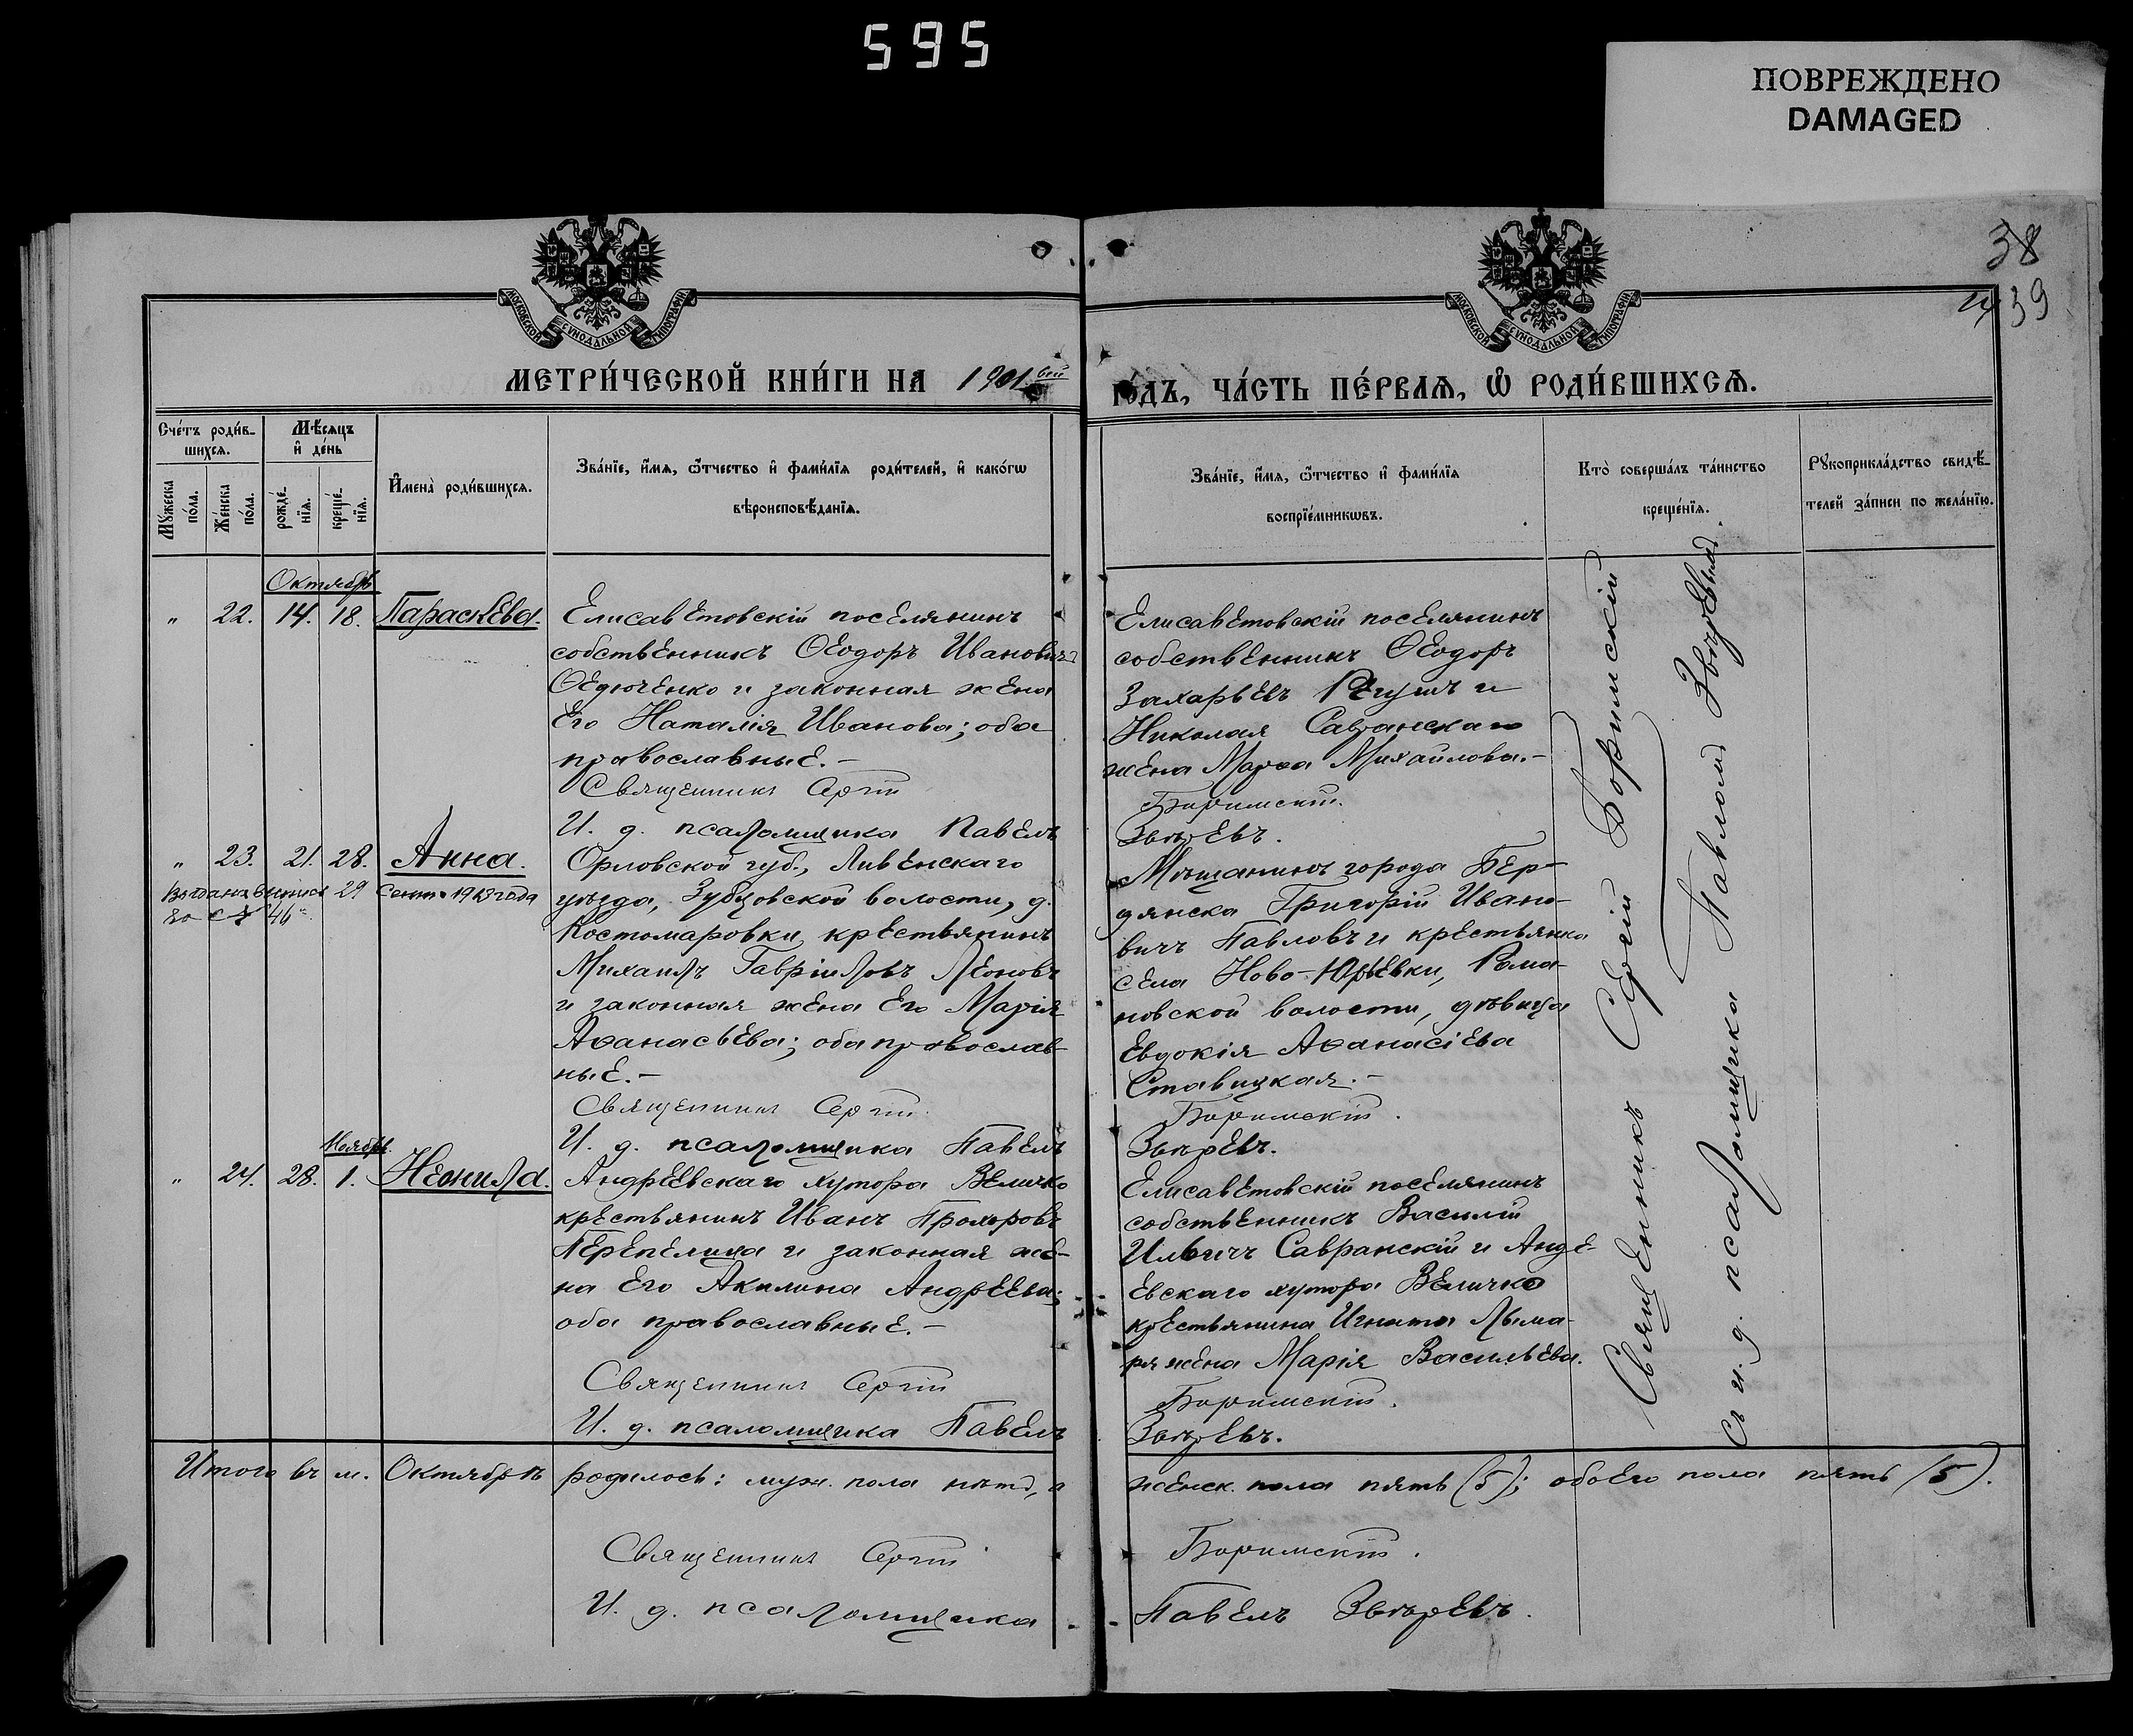 595
ПОВРЕЖДЕНО
DAMAGED
38
39
МОСКОВСКОЙ СѴНОДАЛЬНОЙ ТИПОГРАФІИ
МОСКОВСКОЙ СѴНОДАЛЬНОЙ ТИПОГРАФІИ
МЕТРИ́ЧЕСКОЙ КНИ́ГИ НА 1901.вый
ГО́ДЪ, ЧА́СТЬ ПЕ́РВАѦ, Ѡ҆ РОДИ́ВШИХСѦ.
Сче́тъ роди́вшихсѧ.
Мѣ́сяцъ и҆ де́нь
Мꙋ́жеска по́ла.
Же́нска по́ла.
рожде́нїѧ.
креще́нїѧ.
И҆мена̀ роди́вшихсѧ.
Зва́нїе, и҆́мѧ, ѻ҆́тчество и҆ фами́лїѧ роди́телей, и҆ како́гѡ
вѣроисповѣ́данїѧ.
Зва́нїе, и҆́мѧ, ѻ҆́тчество и҆ фами́лїѧ
воспрїе́мникѡвъ.
Кто̀ соверша́лъ та́инство
креще́нїѧ.
Рꙋкоприкла́дство свидѣ́-
телей за́писи по жела́нїю.
Октябрь
" 22. 14. 18. Параскева.
Елисаветовскій поселянинъ
собственникъ Ѳеодоръ Ивановичъ
Ѳедюченко и законная жена
его Наталія Иванова; оба
православные.-
Священникъ Сергій
И. д. псаломщика Павелъ
Елисаветовскій поселянинъ
собственникъ Ѳеодоръ
Захарьевъ и
Николая Савранскаго
жена Марѳа Михайлова.-
Боримскій.
Звѣревъ.
" 23. 21. 28. Анна.
29 1913 года
46
Орловской губ., Ливенскаго
уѣзда, Зубцовской волости, д.
Костомаровки, крестьянинъ
Михаилъ Гавріиловъ Леоновъ
и законная жена его Марія
Аѳанасьева; оба православ-
ные.-
Священникъ Сергій
И. д. псаломщика Павелъ
Мѣщанинъ города Бер-
дянска Григорій Ивано-
вичъ Павловъ и крестьянка
села Ново-Юрьевки, Рома-
новской волости, дѣвица
Евдокія Аѳанасіева
Ставицкая.-
Боримскій.
Звѣревъ.
Ноябрь
" 24. 28. 1. Неонила.
Андреевскаго хутора Величко
крестьянинъ Иванъ Прохоровъ
Перепелица и законная же-
на его Акилина Андреева;
оба православные.-
Священникъ Сергій
И. д. псаломщика Павелъ
Елисаветовскій поселянинъ
собственникъ Василій
Ильичъ Савранскій и Андре-
евскаго хутора Величко
крестьянина Игната Лыма-
ря жена Марія Васильева.
Боримскій.
Звѣревъ.
Священникъ Сергій Боримскій
Съ и. д. псаломщика Павломъ Звѣревымъ.
Итого въ м. Октябрѣ родилось: муж. пола нѣтъ, а женск. пола пять (5); обоего пола пять (5).
Священникъ Сергій Боримскій.
И. д. псаломщика Павелъ Звѣревъ.